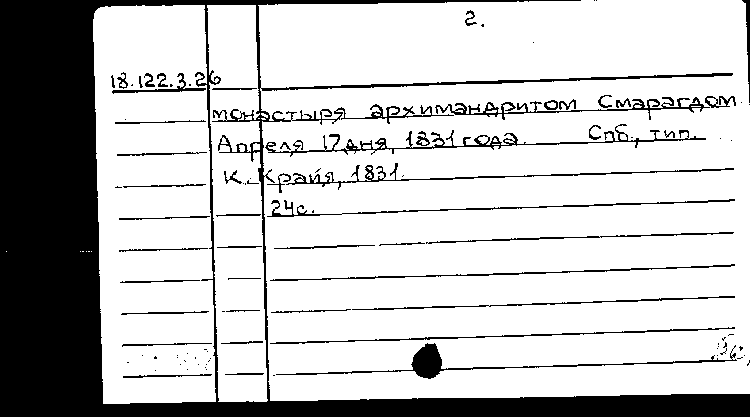 2.
18.122.3.26
монастыря архимандритом Смарагдом
Апреля 17 дня, 1831 года. Спб., тип.
К. Крайя, 1831.
24с.